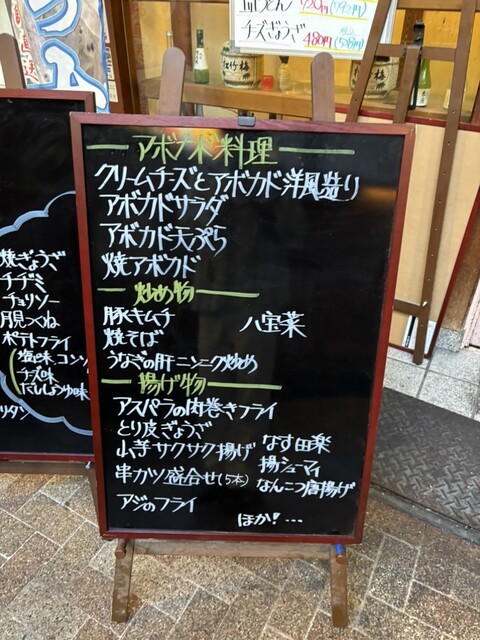 チーズぎょうざ
480円 (528円)
アボカド料理
クリームチーズとアボカド洋風造り
アボカドサラダ
アボカド天ぷら
焼アボカド
炒め物
豚キムチ
八宝菜
焼そば
うなぎの肝ニンニク炒め
揚げ物
アスパラの肉巻きフライ
とり皮ぎょうざ
山芋サクサク揚げ
なす田楽
揚シューマイ
串カツ盛合せ(5本)
なんこつ唐揚げ
アジのフライ
ほか!…
焼ぎょうざ
チヂミ
チョリソー
月見つくね
ポテトフライ
チーズ味
だししょうゆ味